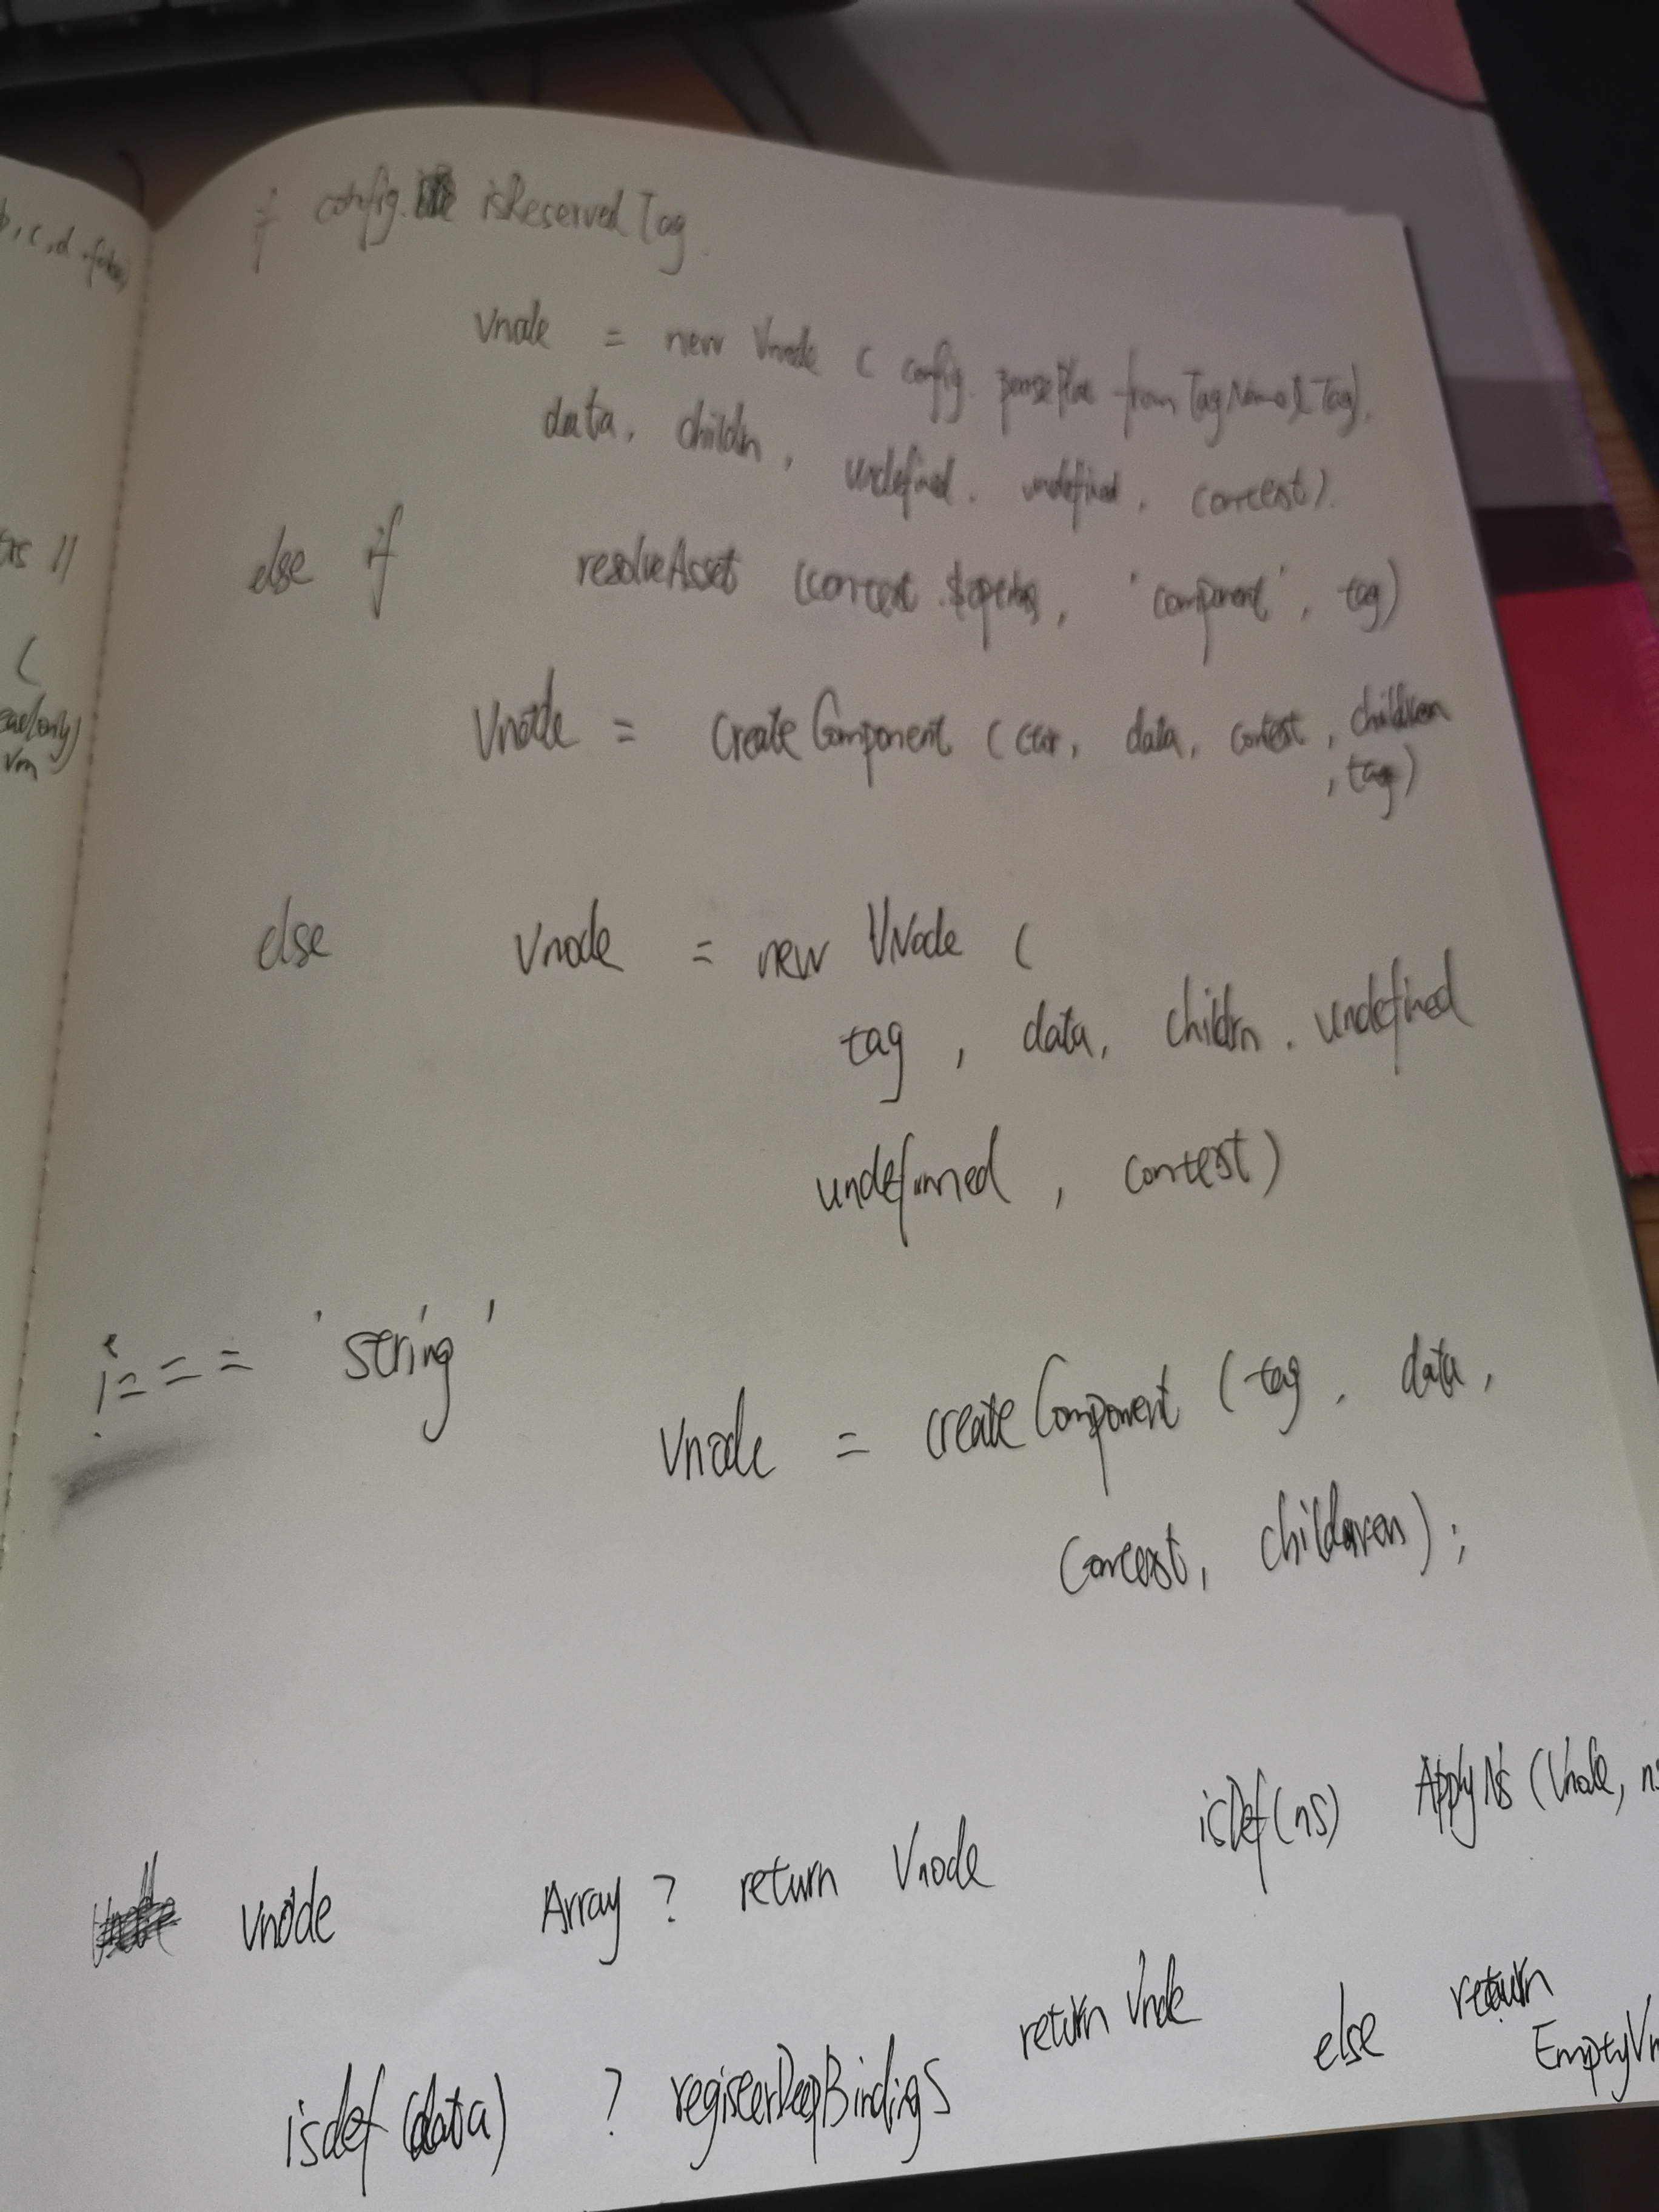 b, c, d, false)
ns //
(
readonly)
vm
if config. isReservedTag.
Vnode = new Vnode ( config. parsePlat from TagName (Tag),
data, childrn, undefined, undefined, context).
else if resolveAsset (context.$options, 'component', tag)
Vnode = createComponent (ctor, data, context, children
, tag)
else Vnode = new VNode (
tag , data, childrn, undefined
undefined , context)
!=== 'string'
Vnode = createComponent (tag, data,
context, children);
vnode Array ? return Vnode isDef(ns) ApplyNs (Vnode, ns
isdef(data) ? registerDeepBindings return Vnode else return
EmptyVn